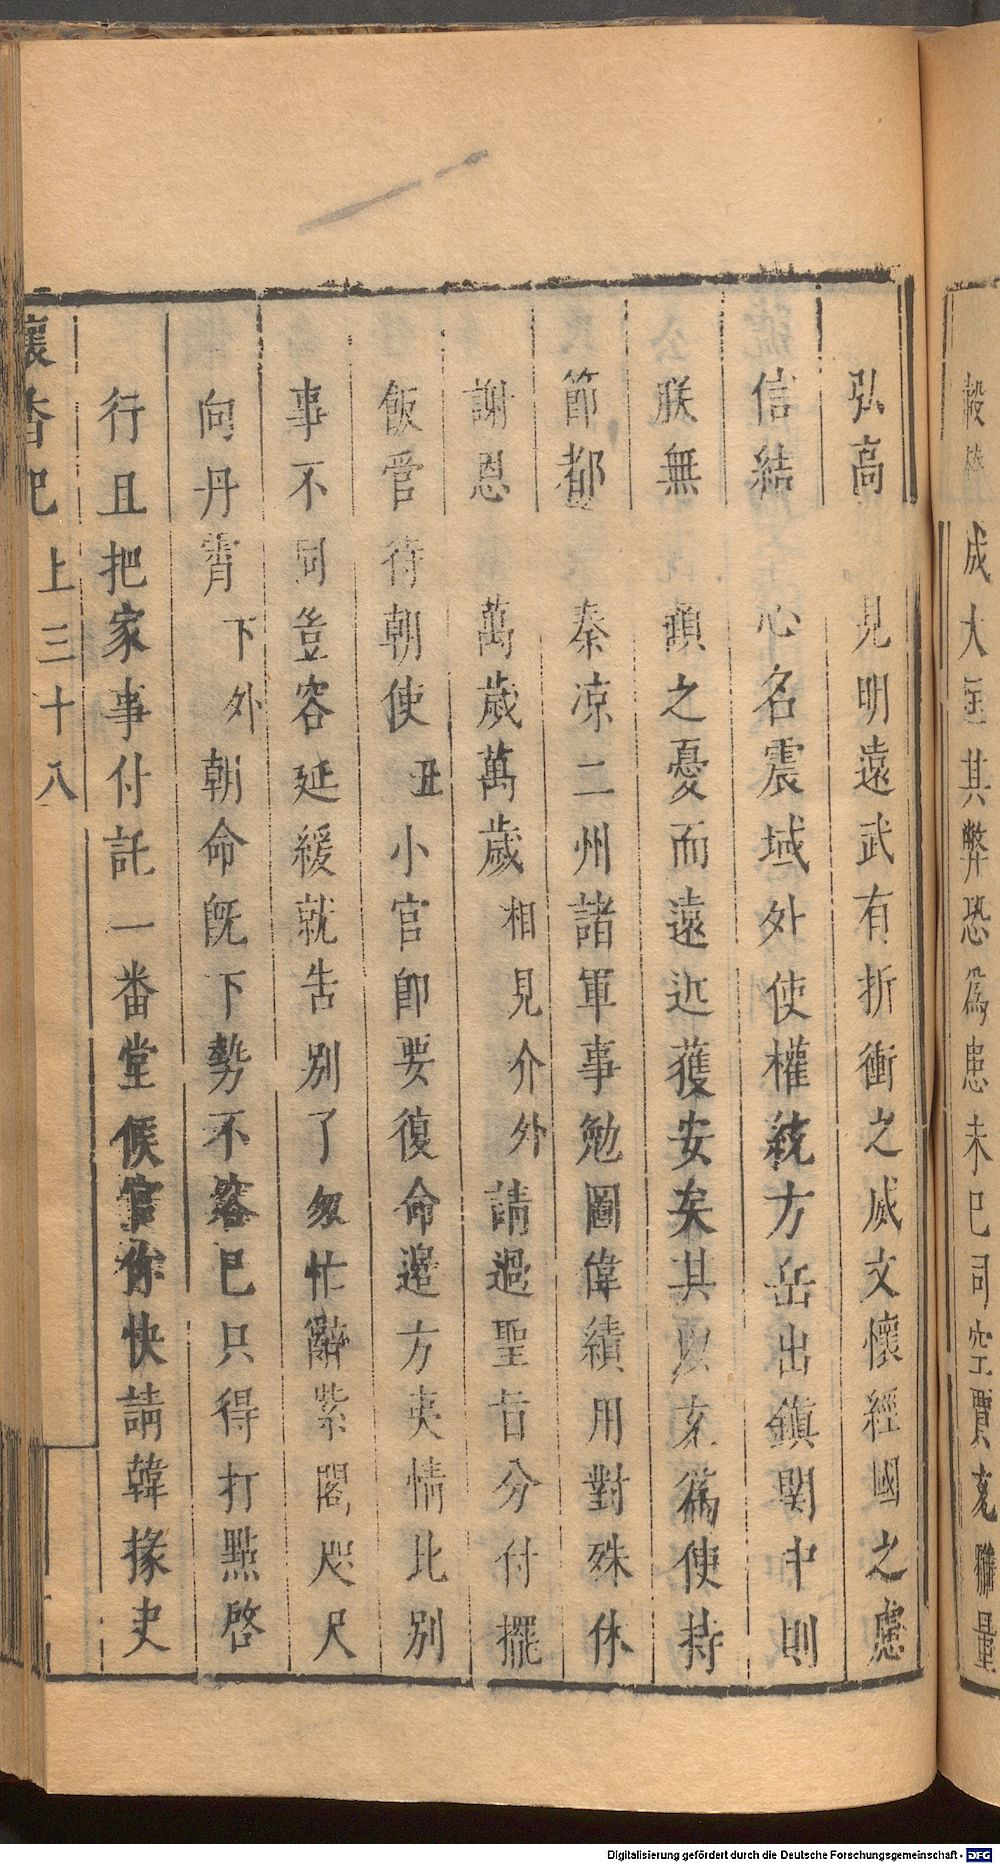 成大匡其弊恐爲患未已司空賈充雅量
弘高 見明遠武有折衝之威文懷經國之慮
信結 心名震域外使權統方岳出鎮関中則
朕無 顧之憂而遠近獲安矣其以充爲使持
節都 秦凉二州諸軍事勉圖偉績用對殊休
謝恩 萬歲萬歲相見介外請過聖旨分付擺
飯管待朝使丑小官即要復命邉方夷情比别
事不同豈容延緩就告别了匆忙辭紫閣咫尺
向丹霄下外朝命旣下勢不容已只得打點啓
行且把家事付託一番堂候官你快請韓掾史
懷香記 上三十八
Digitalisierung gefördert durch die Deutsche Forschungsgemeinschaft - DFG